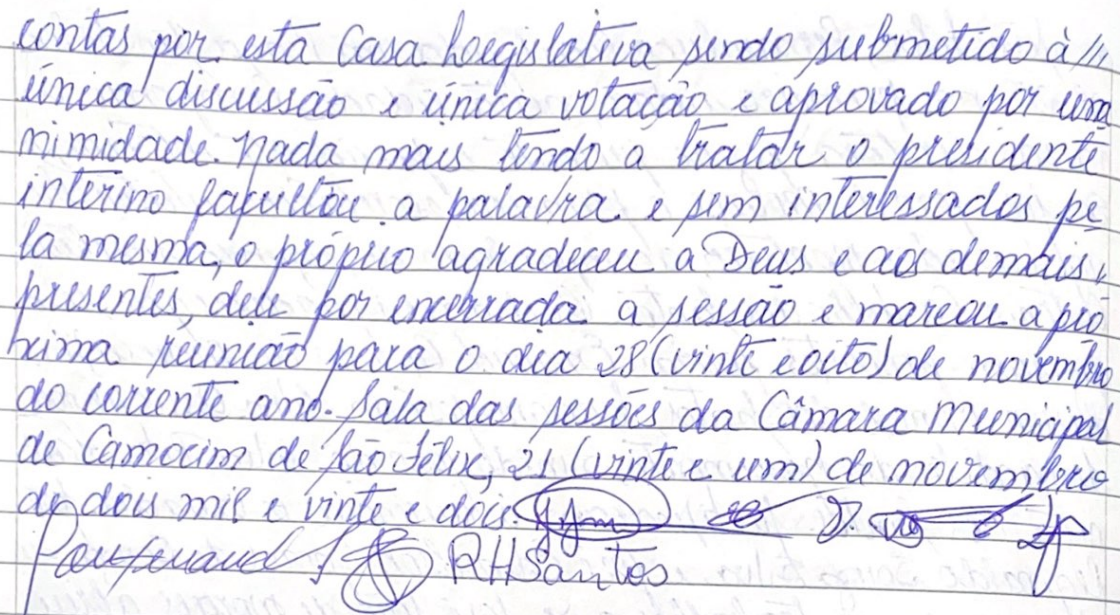 contas por esta Casa Legislativa sendo submetido à
única discussão e única votação e aprovado por una
nimidade. Nada mais tendo a tratar o presidente
interino facultou a palavra e sem interessados pe
la mesma, o próprio agradeceu a Deus e aos demais
presentes, deu por encerrada a sessão e marcou a pró
xima reunião para o dia 28 (vinte e oito) de novembro
do corrente ano. Sala das sessões da Câmara Municipal
de Camocim de São Félix, 21 (vinte e um) de novembro
de dois mil e vinte e dois.
RHSantos